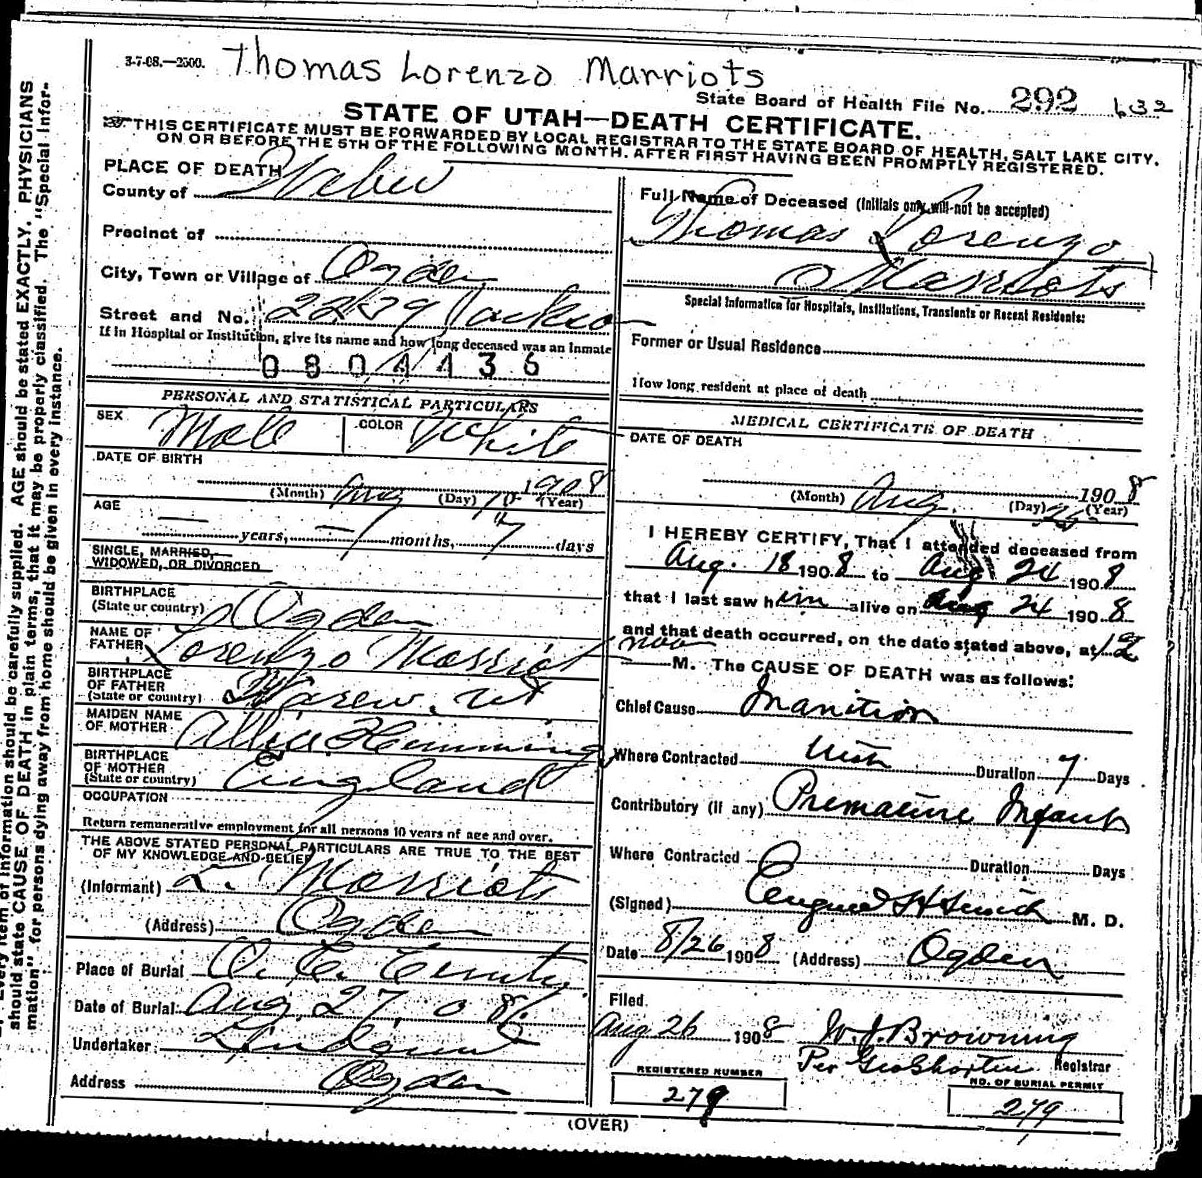 3-7-08.—2500. Thomas Lorenzo Marriots
State Board of Health File No. 292 632
STATE OF UTAH—DEATH CERTIFICATE.
THIS CERTIFICATE MUST BE FORWARDED BY LOCAL REGISTRAR TO THE STATE BOARD OF HEALTH, SALT LAKE CITY.
ON OR BEFORE THE 5TH OF THE FOLLOWING MONTH. AFTER FIRST HAVING BEEN PROMPTLY REGISTERED.
PLACE OF DEATH
County of Weber
Precinct of
City, Town or Village of Ogden
Street and No. Jackson
If in Hospital or Institution, give its name and how long deceased was an Inmate
0804436
PERSONAL AND STATISTICAL PARTICULARS
SEX Male COLOR White
DATE OF BIRTH
(Month) Aug (Day) (Year) 1908
AGE
— years, — months, 7 days
SINGLE, MARRIED,
WIDOWED, OR DIVORCED
BIRTHPLACE
(State or country) Ogden
NAME OF
FATHER Lorenzo Marriot
BIRTHPLACE
OF FATHER
(State or country)
MAIDEN NAME
OF MOTHER Allice Hemming
BIRTHPLACE
OF MOTHER
(State or country) England
OCCUPATION
Return remunerative employment for all persons 10 years of age and over.
THE ABOVE STATED PERSONAL PARTICULARS ARE TRUE TO THE BEST
OF MY KNOWLEDGE AND BELIEF
(Informant) L. Marriots
(Address) Ogden
Place of Burial
Date of Burial Aug 27, 08
Undertaker Lindquist
Address Ogden
Full Name of Deceased (Initials only will not be accepted)
Thomas Lorenzo
Marriots
Special Information for Hospitals, Institutions, Transients or Recent Residents:
Former or Usual Residence
How long resident at place of death
MEDICAL CERTIFICATE OF DEATH
DATE OF DEATH
(Month) Aug. (Day) 1908 (Year)
I HEREBY CERTIFY, That I attended deceased from
Aug. 18 1908 to Aug 24 1908
that I last saw him alive on Aug 24 1908
and that death occurred, on the date stated above, at
M. The CAUSE OF DEATH was as follows:
Chief Cause Inanition
Where Contracted Duration 7 Days
Contributory (if any) Premature Infant
Where Contracted Duration Days
(Signed) Eugene H Smith M. D.
Date 8/26 1908 (Address) Ogden
Filed.
Aug 26 1908 W. J. Browning
Per Geo Shorten Registrar
REGISTERED NUMBER
279
NO. OF BURIAL PERMIT
279
(OVER)
Every item of information should be carefully supplied. AGE should be stated EXACTLY. PHYSICIANS
should state CAUSE OF DEATH in plain terms, that it may be properly classified. The "Special Infor-
mation" for persons dying away from home should be given in every instance.